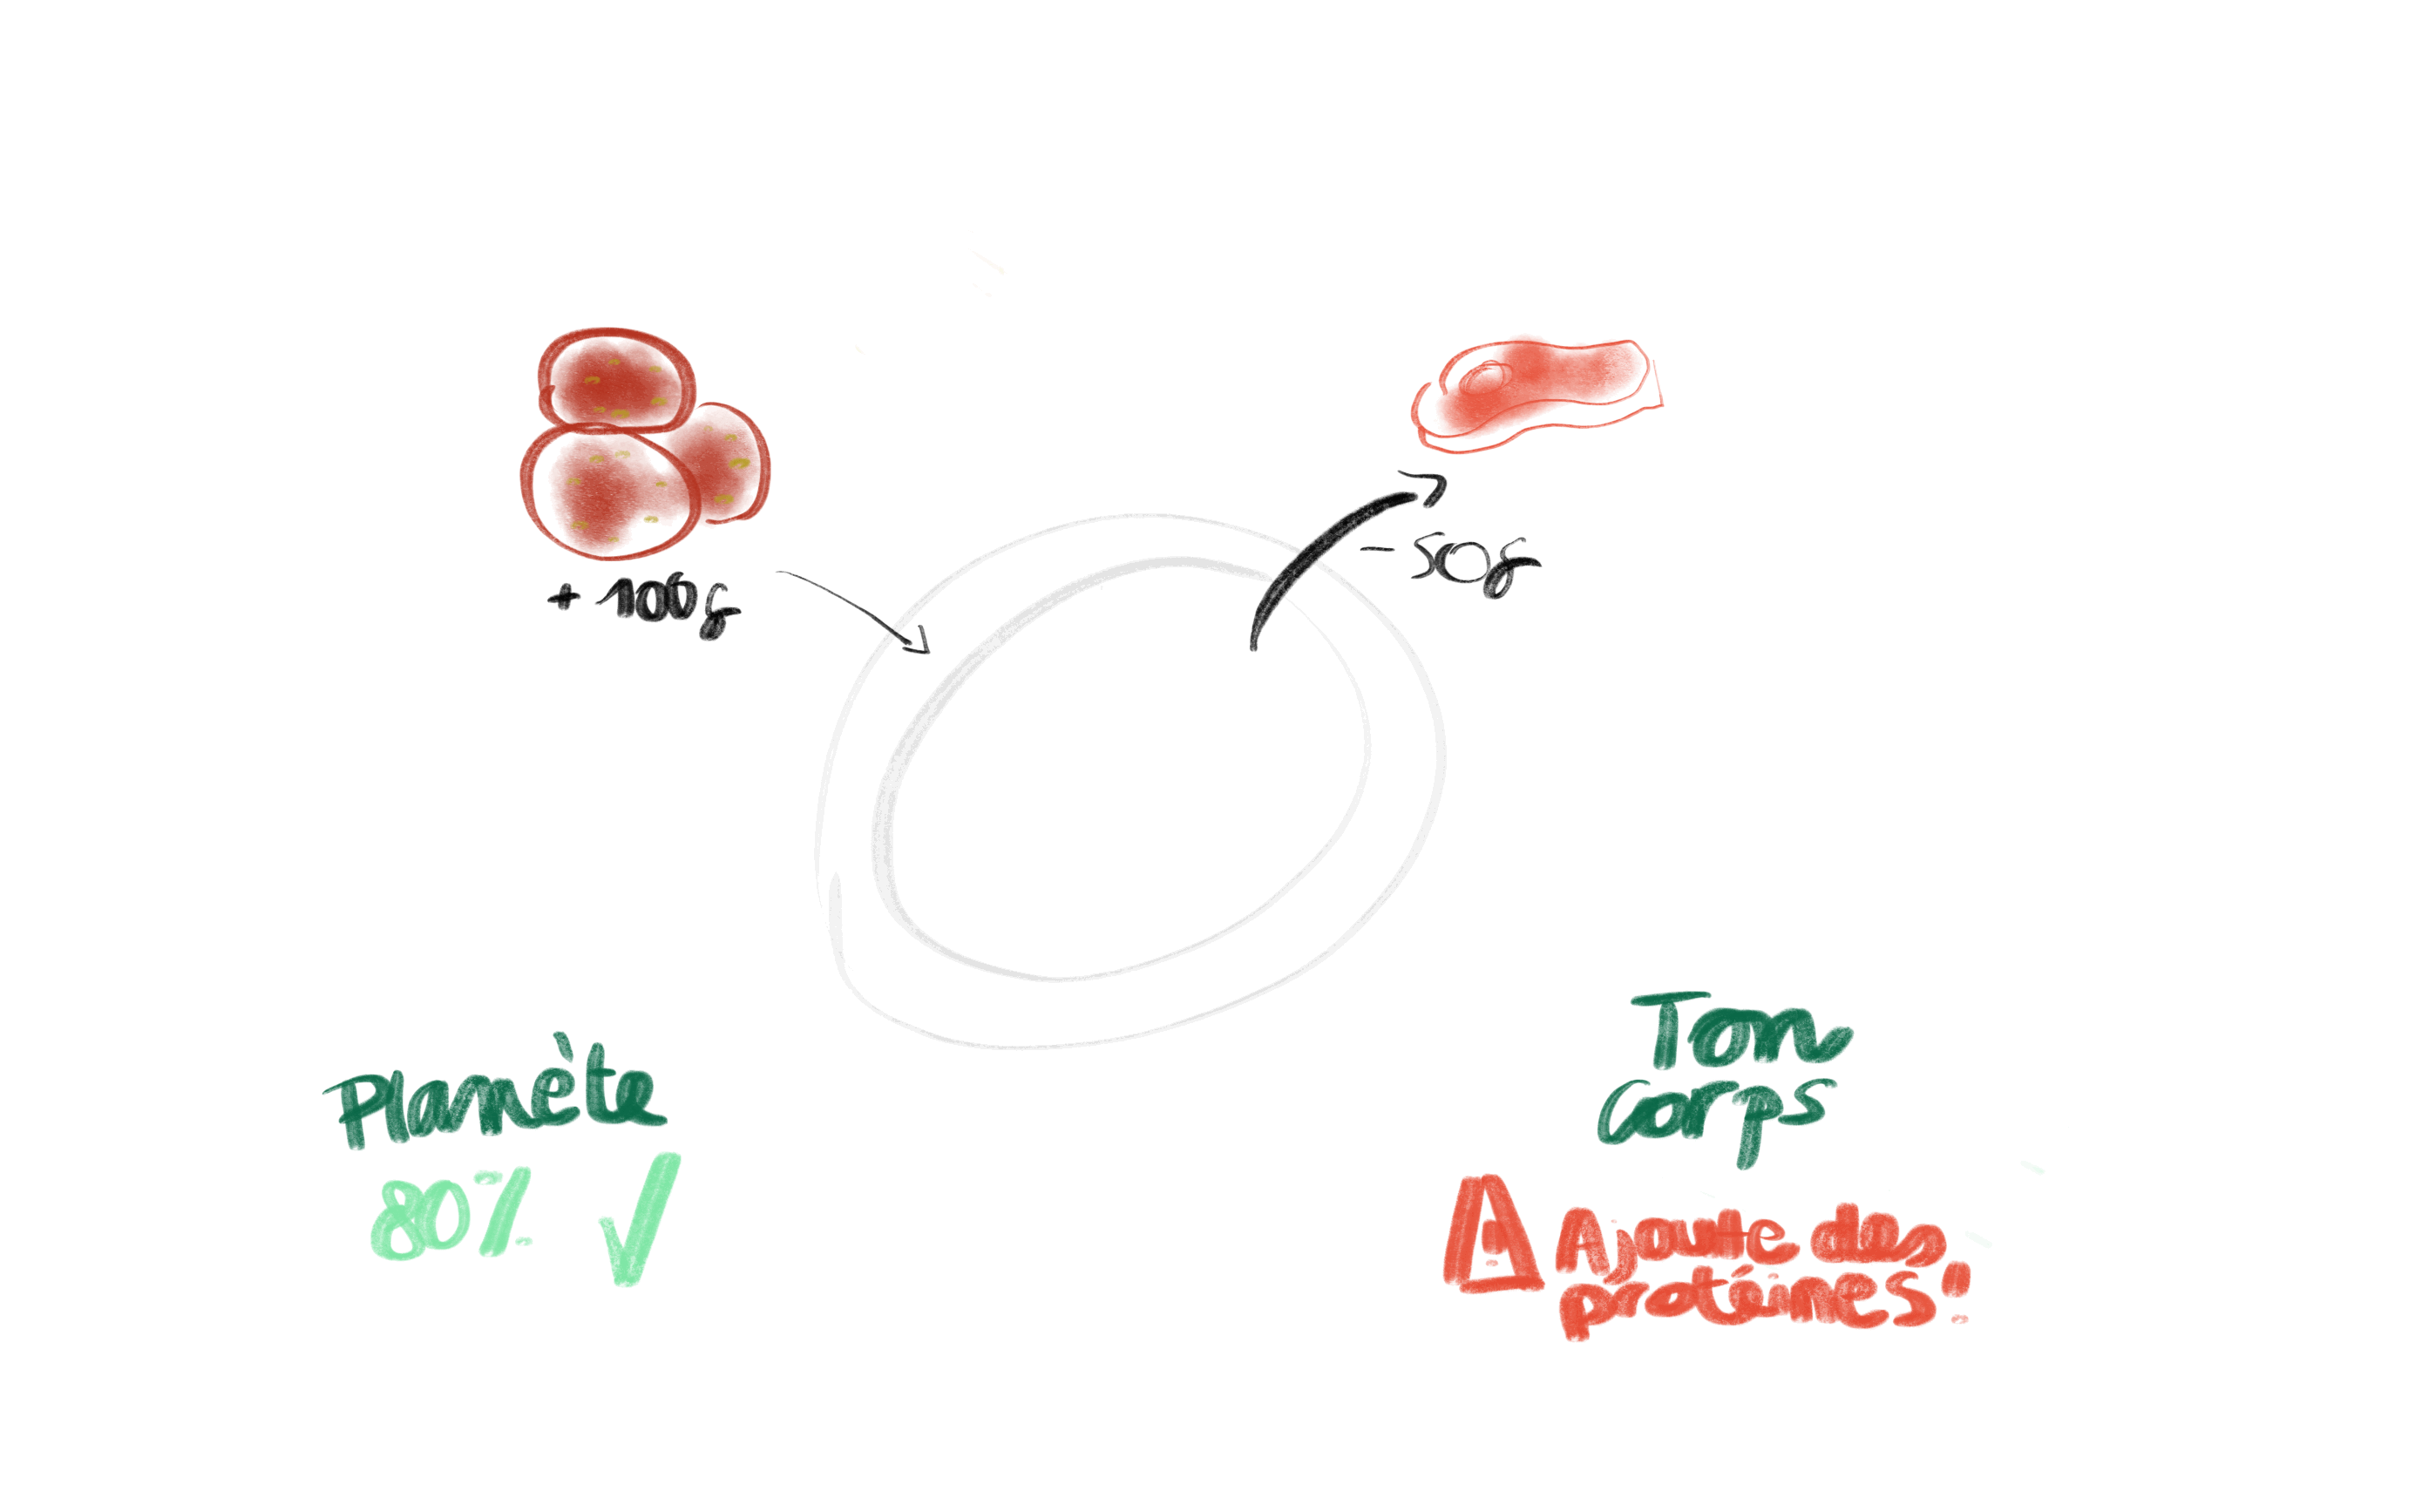 + 100g
- 50g
Planète
80%
Ton
corps
Ajoute des
protéines!